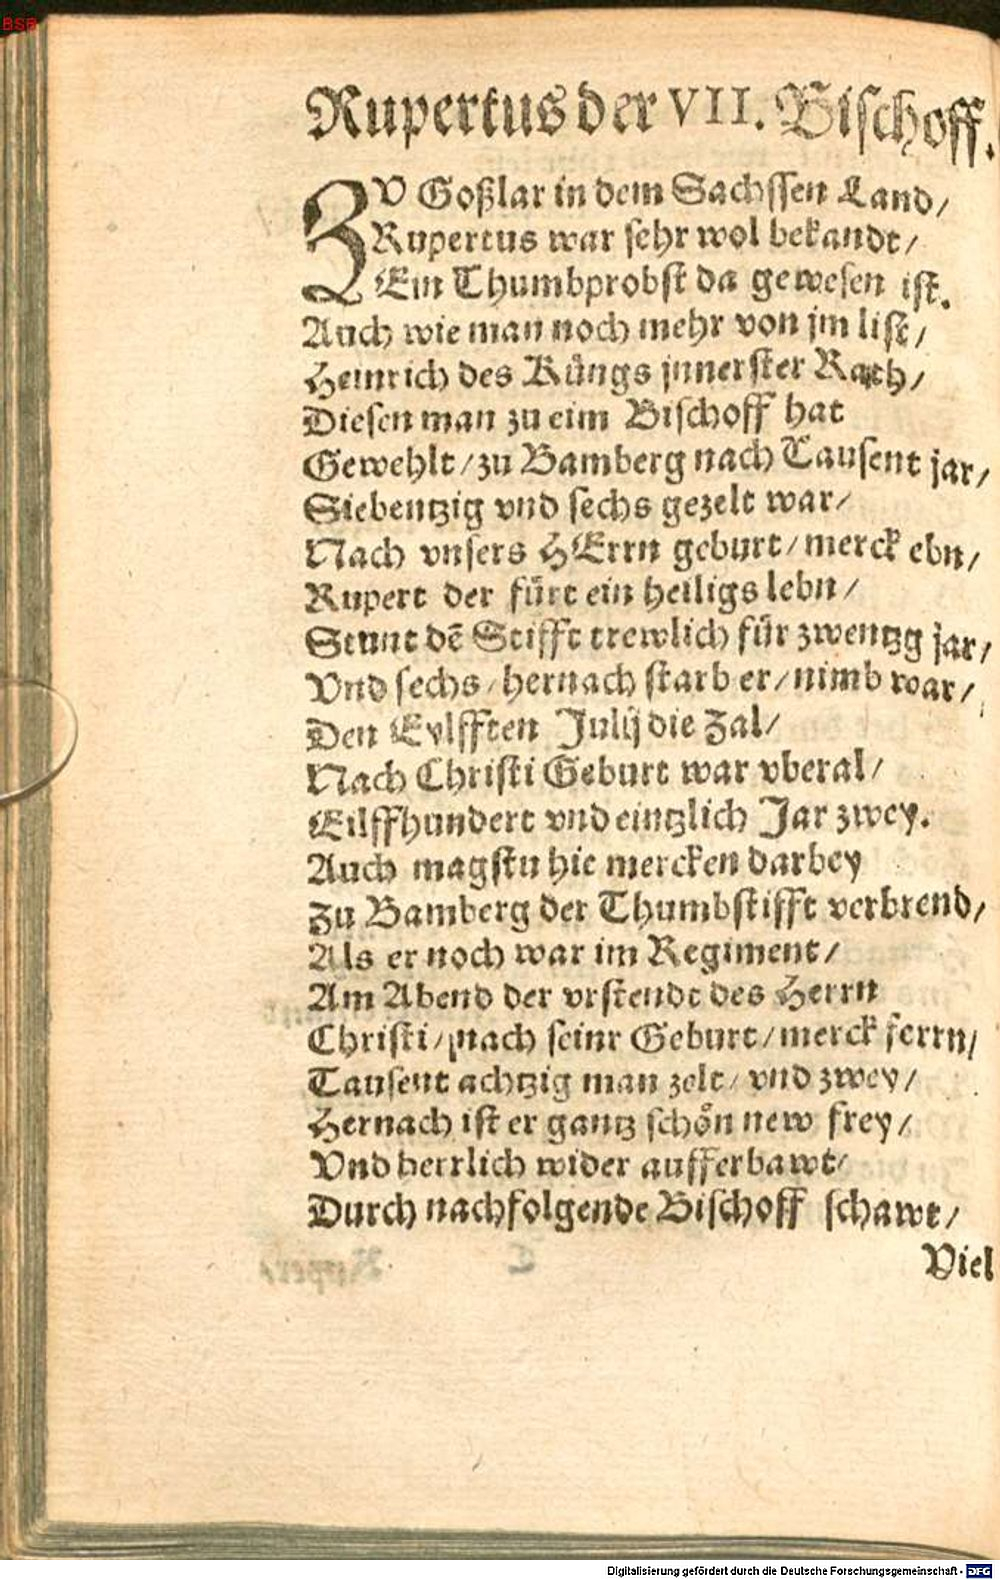 BSB
Rupertus der VII. Bischoff.
ZV Goßlar in dem Sachssen Land/
Rupertus war sehr wol bekandt/
Ein Thumbprobst da gewesen ist.
Auch wie man noch mehr von jm list/
Heinrich des Küngs jnnerster Rath/
Diesen man zu eim Bischoff hat
Gewehlt/zu Bamberg nach Tausent jar/
Siebentzig vnd sechs gezelt war/
Nach vnsers HErrn geburt/merck ebn/
Rupert der fürt ein heiligs lebn/
Stunt dē Stifft trewlich für zwentzg jar/
Vnd sechs/hernach starb er/nimb war/
Den Eylfften Julij die Zal/
Nach Christi Geburt war vberal/
Eilffhundert vnd eintzlich Jar zwey.
Auch magstu hie mercken darbey
Zu Bamberg der Thumbstifft verbrend/
Als er noch war im Regiment/
Am Abend der vrstendt des Herrn
Christi/nach seinr Geburt/merck ferrn/
Tausent achtzig man zelt/vnd zwey/
Hernach ist er gantz schön new frey/
Vnd herrlich wider aufferbawt/
Durch nachfolgende Bischoff schawt/
Viel
Digitalisierung gefördert durch die Deutsche Forschungsgemeinschaft - DFG